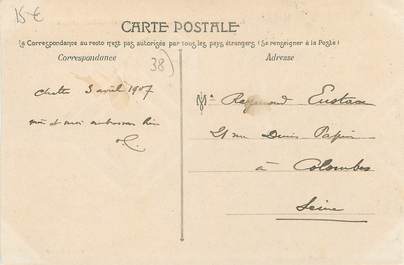 15€
CARTE POSTALE
La Correspondance au recto n'est pas autorisée par tous les pays étrangers (Se renseigner à la Poste)
Correspondance
Adresse
38)
3 avril 1907
et moi
Raymond Eustace
21 rue Denis Papin
à Colombes
Seine